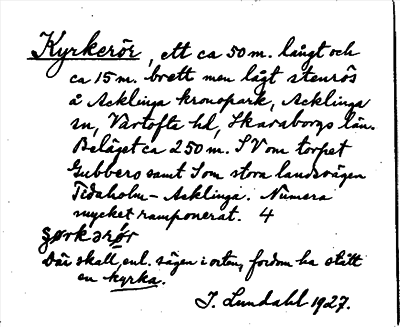 Kyrkerör, ett ca 50 m. långt och
ca 15 m. brett men lågt stenrös
å Acklinga kronopark, Acklinga
sn, Vartofta hd, Skaraborgs län.
Beläget ca 250 m. SV om torpet
Gubbero samt S om stora landsvägen
Tidaholm - Acklinga. Numera
mycket ramponerat. 4
ʂørkərǫ̈r
Där skall, enl. sägen i orten, fordom ha stått
en kyrka.
J. Lundahl 1927.